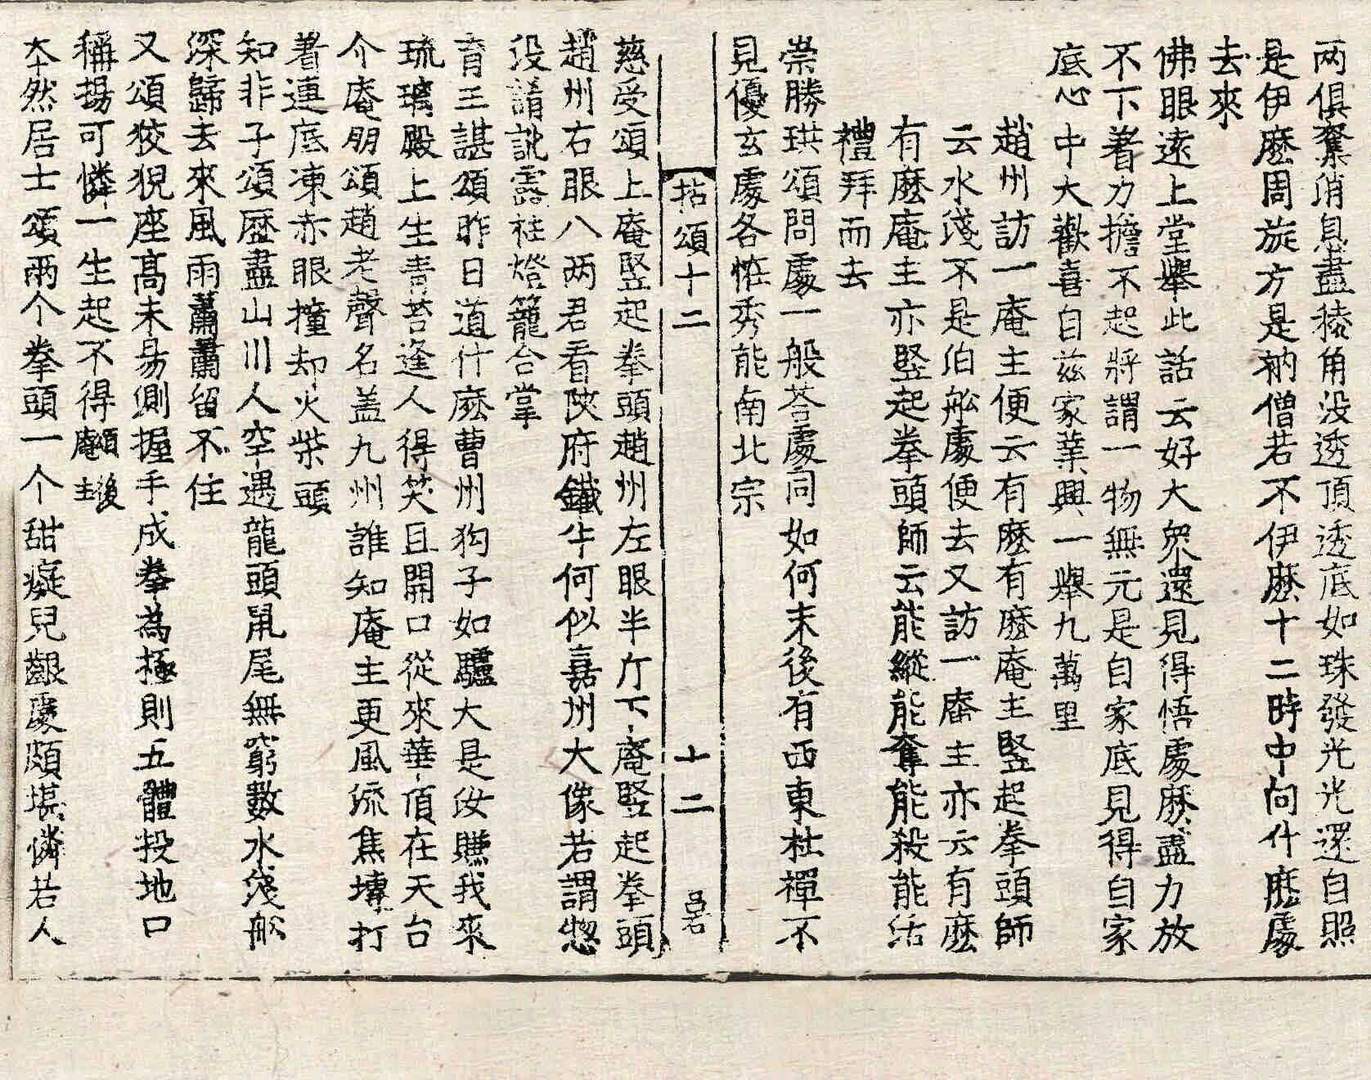 两俱奪消息盡稜角没透頂透底如珠發光光還自照
是伊麽周旋方是衲僧若不伊麽十二時中向什麽處
去來
佛眼遠上堂舉此話云好大衆還見得悟處麽盡力放
不下著力擔不起將謂一物無元是自家底見得自家
底心中大歡喜自兹家業興一舉九萬里
趙州訪一庵主便云有麽有麽庵主竪起拳頭師
云水淺不是泊舩處便去又訪一庵主亦云有麽
有麽庵主亦竪起拳頭師云能縱能奪能殺能活
禮拜而去
崇勝珙頌問處一般荅處同如何末後有西東杜禪不
見優玄處各恠秀能南北宗
拈頌十二 十二
慈受頌上庵竪起拳頭趙州左眼半斤下庵竪起拳頭
趙州右眼八两君看陜府鐵牛何似嘉州大像若謂惣
没誵訛露柱燈籠合掌
育王諶頌昨日道什麽曹州狗子如驢大是汝賺我來
琉璃殿上生青苔逢人得笑且開口從來華頂在天台
介庵朋頌趙老聲名盖九州誰知庵主更風流焦塼打
著連底凍赤眼撞却火柴頭
知非子頌歷盡山川人空遇龍頭鼠尾無窮數水淺舩
深歸去來風雨蕭蕭留不住
又頌狡猊座高未易側握手成拳為極則五體投地口
稱揚可憐一生起不得頌後庵主
夲然居士頌兩个拳頭一个甜癡兒齦處頗堪憐若人